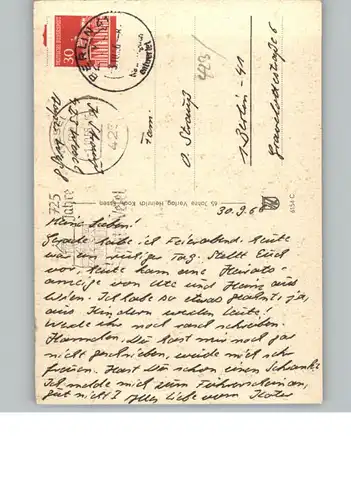 30
BERLIN
423/
Fam.
O. Strauß
1 Berlin-41
423 Wesel
725
Jahre
Wesel
65 Jahre Verlag Heinrich Koch, Essen
6134 C
30.9.6
Meine Lieben!
Gerade habe ich Feierabend. Heute
war ein ruhiger Tag. Stellt Euch
vor, heute kam eine Heirats-
anzeige von Ute und Heinz aus
Wien. Ich habe so etwas geahnt, ja,
aus Kindern werden Leute!
Werde ihr noch rasch schreiben.
Hannchen, Du hast mir noch gar
nicht geschrieben, würde mich sehr
freuen. Hast Du schon einen Schrank?
Ich melde mich zum Führerschein an,
gut nicht? Alles Liebe vom Kater